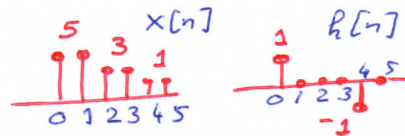 5 3 1 x[n]
0 1 2 3 4 5
1 h[n]
0 1 2 3 4 5
-1